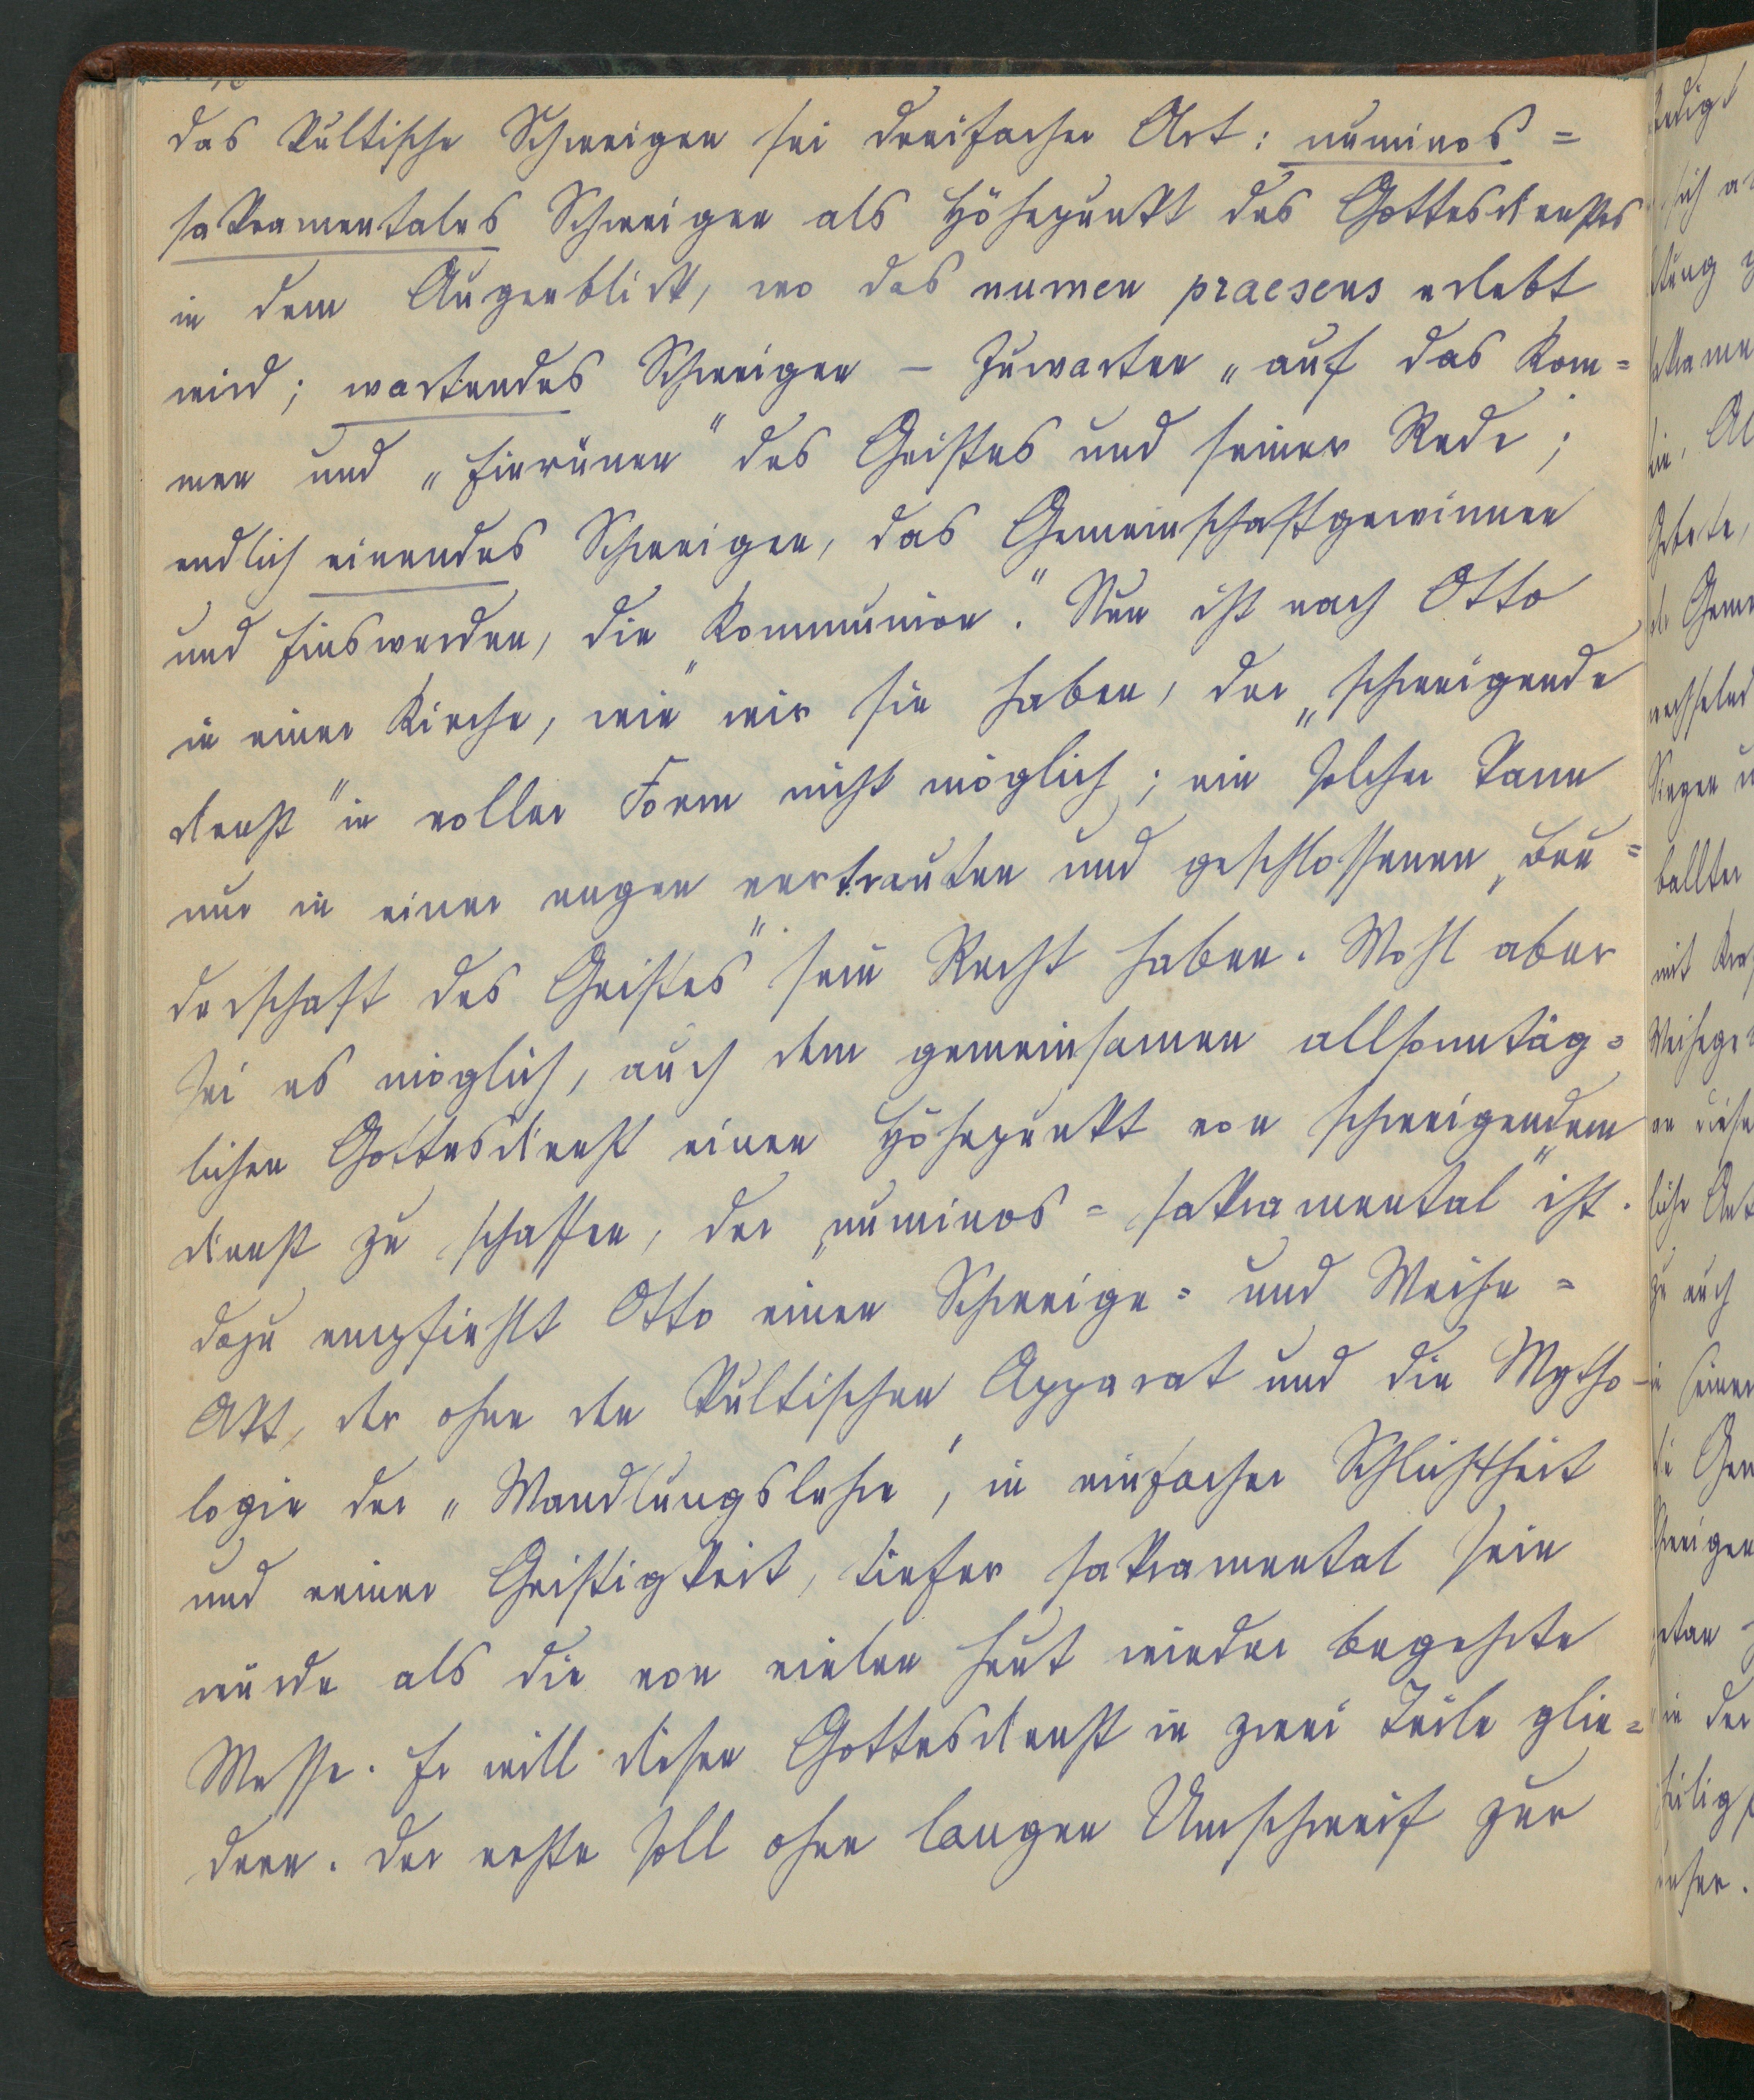 das kultische Schweigen sei dreifacher Art: numinos=
sakramentales Schweigen als Höhepunkt des Gottesdienstes
in dem Augenblick, wo das numen praesens erlebt
wird; wartendes Schweigen – Zuwarten „auf das Kom=
men und „Einrünen" des Geistes und seiner Rede;
endlich einendes Schweigen, das Gemeinschaftgewinnen
und Einswerden, die „Kommunion". Nun ist nach Otto
in einer Kirche, wie wir sie haben, der „schweigende
Dienst" in voller Form nicht möglich; ein solcher kann
nur in einer engen vertrauten und geschlossenen „Bru=
derschaft des Geistes" sein Recht haben. Wohl aber
sei es möglich, auch dem gemeinsamen allsonntäg=
lichen Gottesdienst einen Höhepunkt von schweigendem
Dienst zu schaffen, der „numinos=sakramental" ist.
Dazu empfiehlt Otto einen Schweige= und Weihe=
Akt, der ohne den kultischen Apparat und die Mytho-
logie der „Wandlungslehre", in einfacher Schlichtheit
und reiner Geistigkeit, tiefer sakramental sein
würde als die von vielen heut wieder begehrte
Messe. Er will diesen Gottesdienst in zwei Teile glie=
dern. Der erste soll ohne langen Umschweif zur